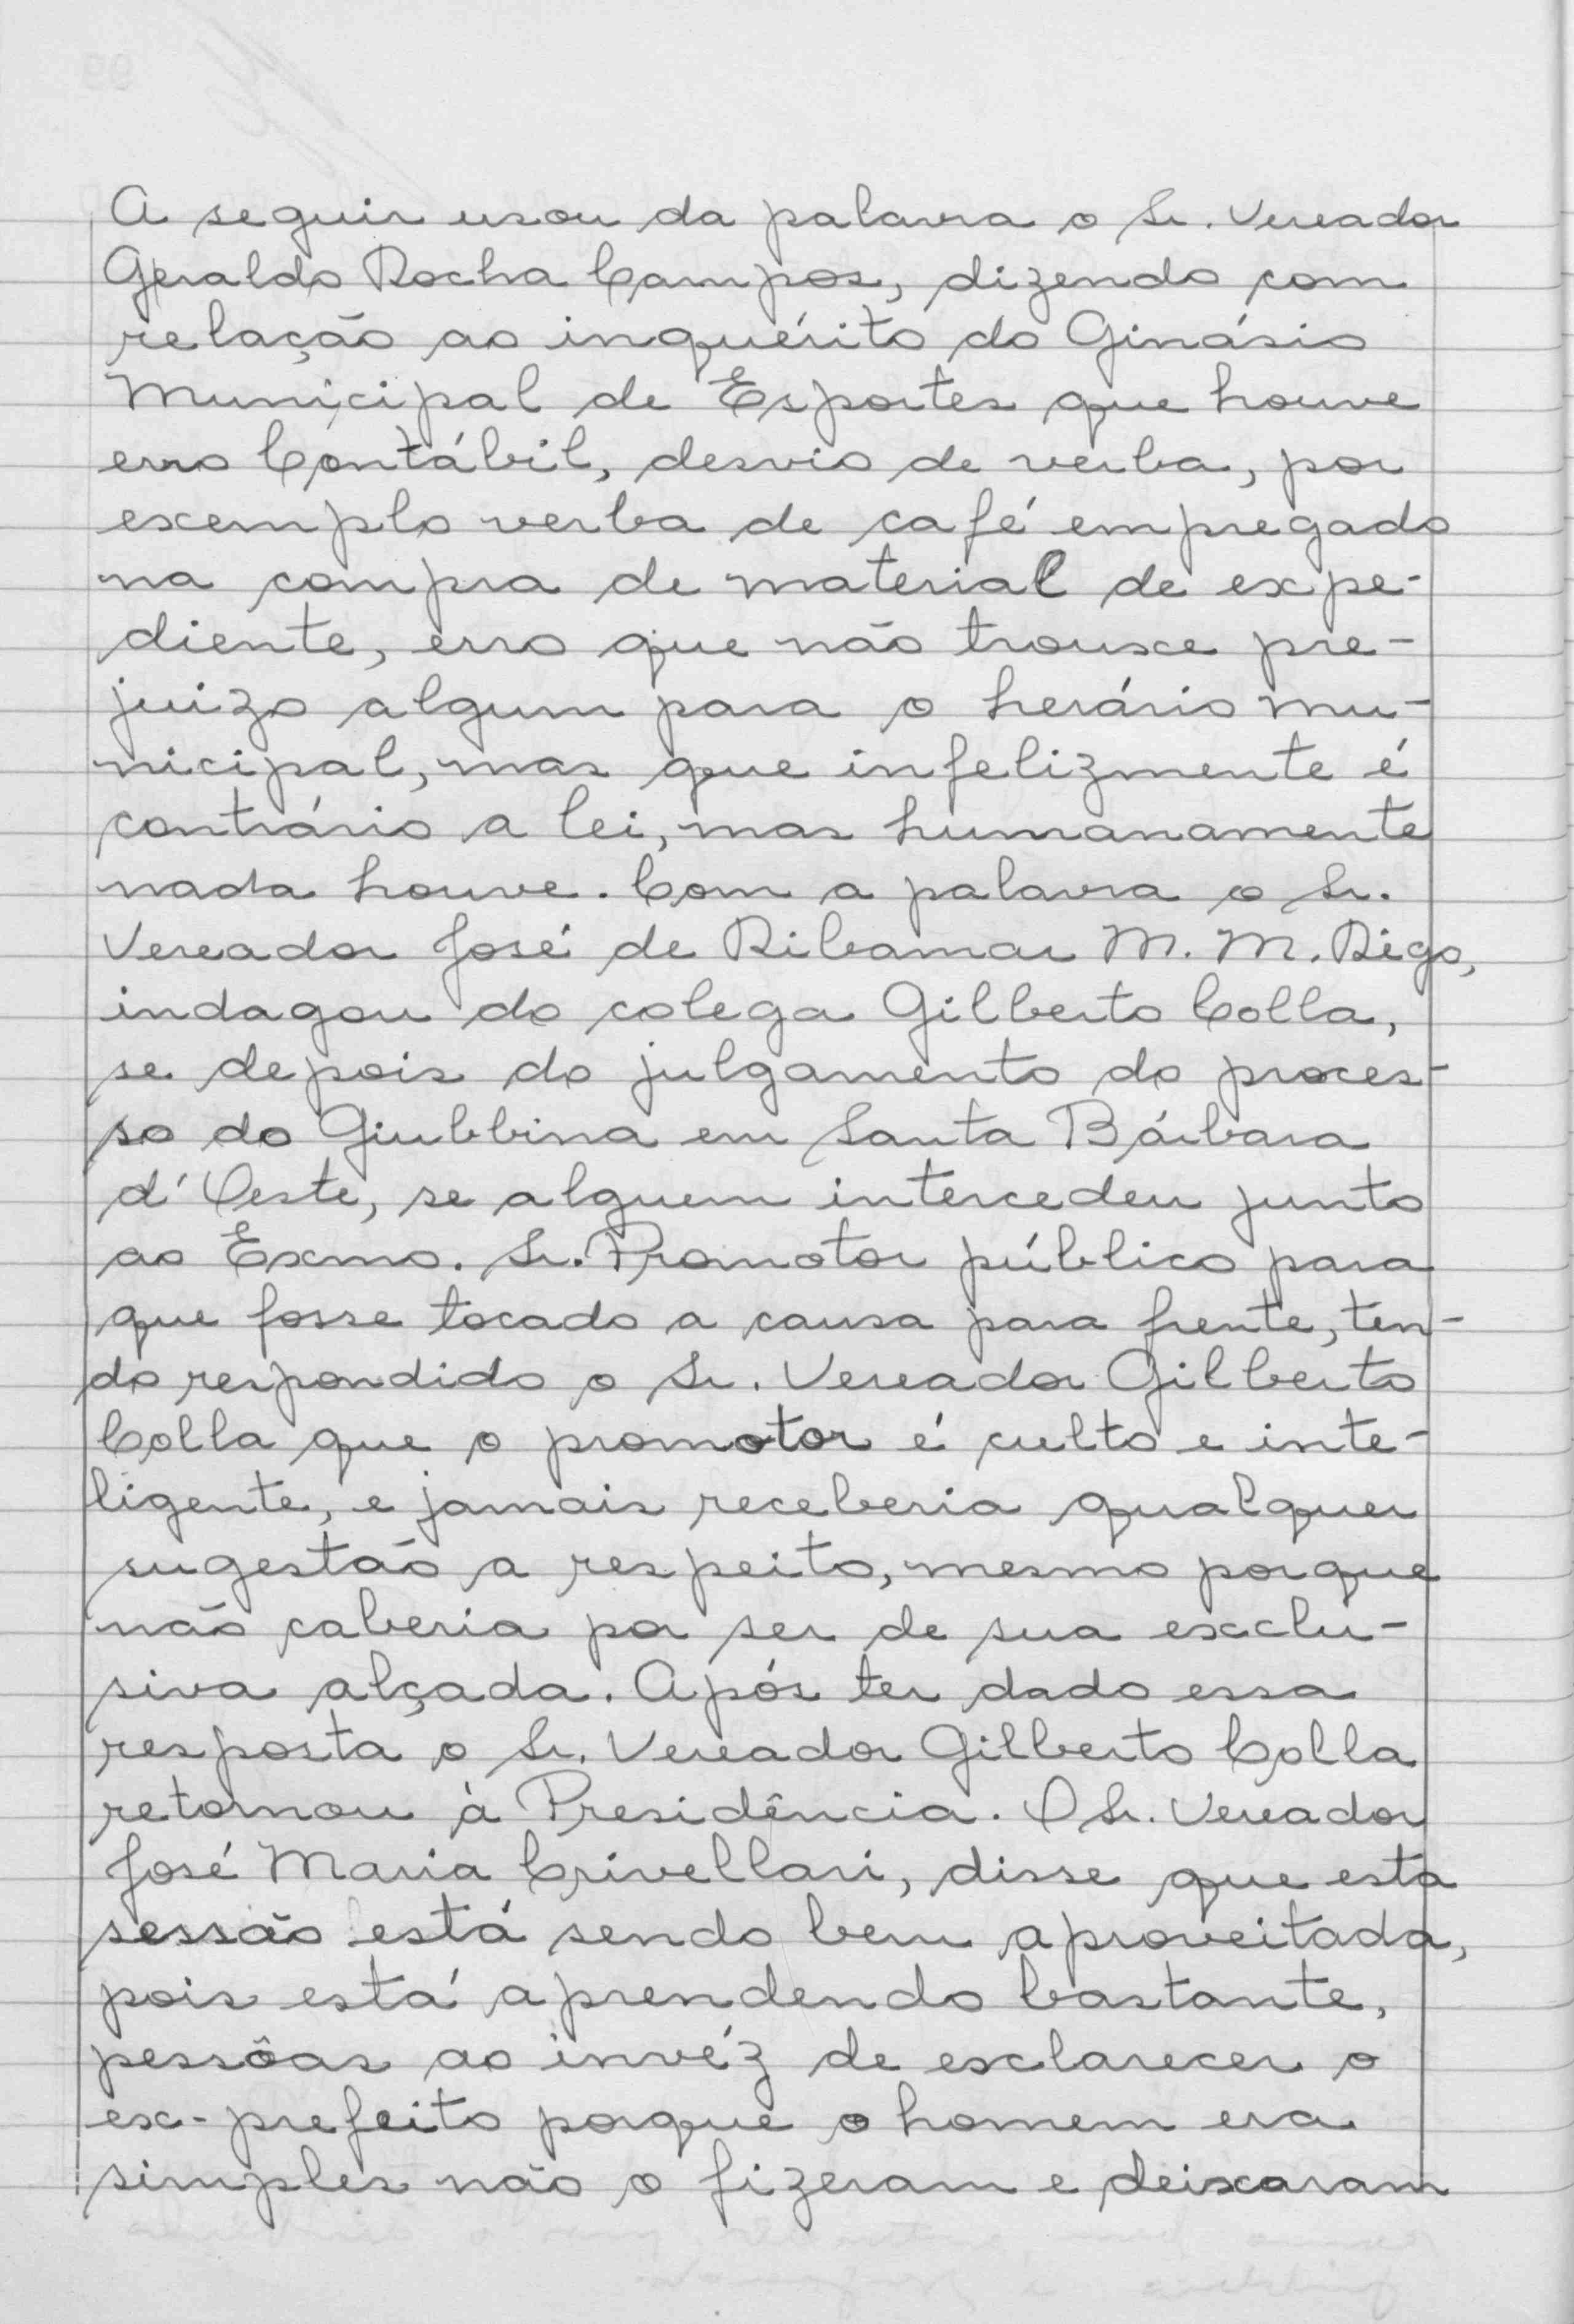 A seguir usou da palavra o Sr. Vereador
Geraldo Rocha Campos, dizendo com
relação ao inquérito do Ginásio
Municipal de Esportes que houve
erro Contábil, desvio de verba, por
exemplo verba de café empregado
na compra de material de expe-
diente, erro que não trouxe pre-
juizo algum para o herário mu-
nicipal, mas que infelizmente é
contrário a lei, mas humanamente
nada houve. Com a palavra o Sr.
Vereador José de Ribamar M. M. Rêgo,
indagou do colega Gilberto Colla,
se depois do julgamento do proces-
so do Giubbina em Santa Bárbara
d'Oeste, se alguem intercedeu junto
ao Exmo. Sr. Promotor público para
que fosse tocado a causa para frente, ten-
do respondido o Sr. Vereador Gilberto
Colla que o promotor é culto e inte-
ligente, e jamais receberia qualquer
sugestão a respeito, mesmo porque
não caberia por ser de sua exclu-
siva alçada. Após ter dado essa
resposta o Sr. Vereador Gilberto Colla
retornou à Presidência. O Sr. Vereador
José Maria Crivellari, disse que esta
sessão está sendo bem aproveitada,
pois está aprendendo bastante,
pessôas ao invéz de esclarecer o
ex-prefeito porque o homem era
simples não o fizeram e deixaram